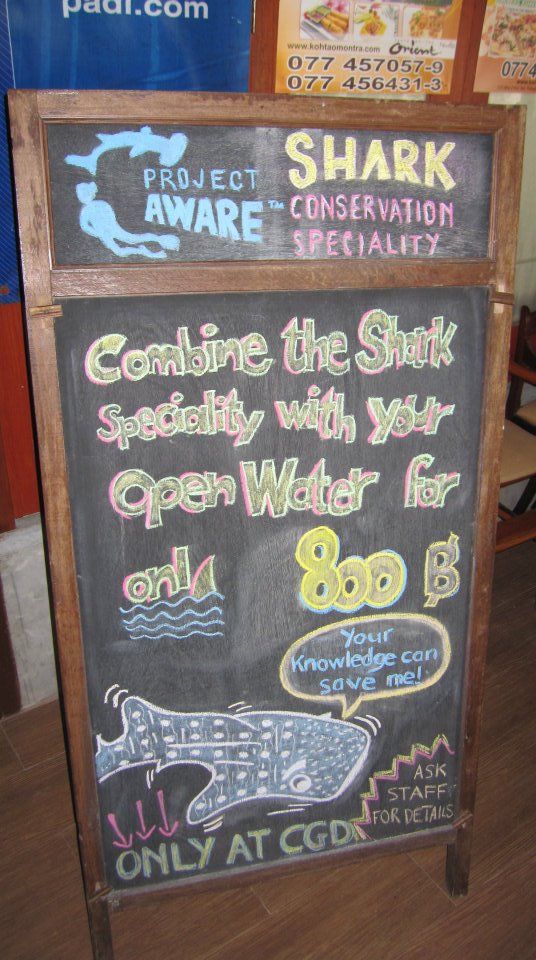 padi.com
www.kohtaomontra.com Orient
077 457057-9
077 456431-3
0774
PROJECT
AWARE™
SHARK
CONSERVATION
SPECIALITY
Combine the Shark
Speciality with your
Open Water for
only 800 ฿
Your
Knowledge can
save me!
ASK
STAFF
FOR DETAILS
ONLY AT CGD